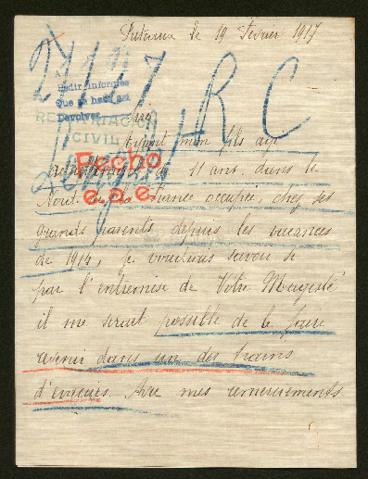 le 19 février 1917
27117
R C
Pedir informes
Que se haga así
Devolver
CIVIL
Sire
Ayant mon fils agé
de 11 ans dans le
Nord de la France occupée, chez ses
grands parents depuis les vacances
de 1914, je voudrais savoir si
par l'entremise de Votre Majesté
il me serait possible de le faire
revenir dans un des trains
d'évacués. Avec mes remerciements
Fecho
e.a.e.